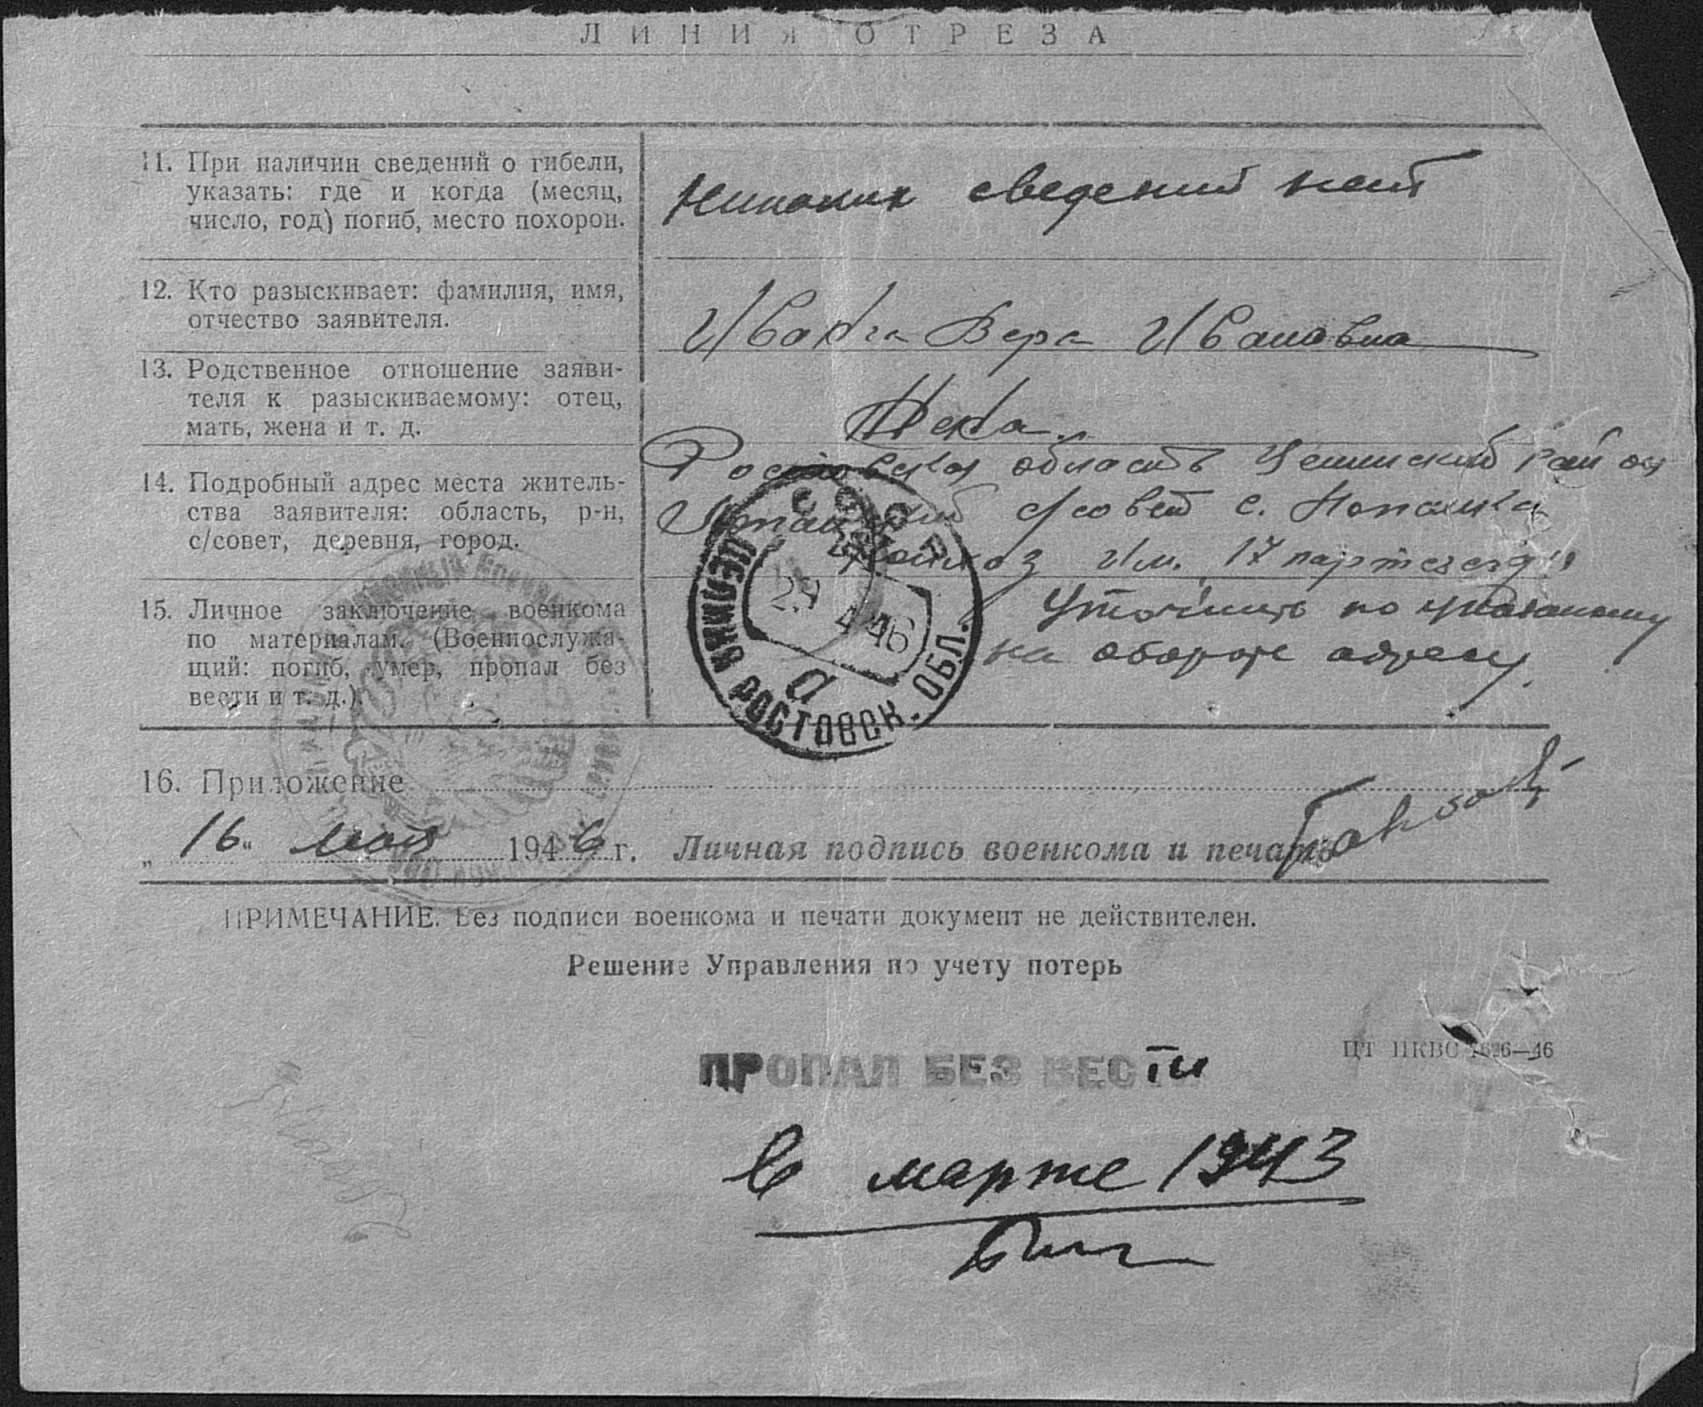 ЛИНИЯ ОТРЕЗА
11. При наличии сведений о гибели,
указать: где и когда (месяц,
число, год) погиб, место похорон.
Никаких сведений нет
12. Кто разыскивает: фамилия, имя,
отчество заявителя.
Вера Ивановна
13. Родственное отношение заяви-
теля к разыскиваемому: отец,
мать, жена и т. д.
Жена.
14. Подробный адрес места житель-
ства заявителя: область, р-н,
с/совет, деревня, город.
Ростовская область Целинский район
с/совет с.
Колхоз им. 17 партсезда
15. Личное заключение военкома
по материалам. (Военнослужа-
щий: погиб, умер, пропал без
вести и т. д.)
Уточнить по указаному
на обороте адресу.
СССР
ЦЕЛИНА РОСТОВСК. ОБЛ.
4 46
а
16. Приложение
„16“ мая 1946 г. Личная подпись военкома и печать
ПРИМЕЧАНИЕ. Без подписи военкома и печати документ не действителен.
Решение Управления по учету потерь
ЦТ НКВС 1626—46
ПРОПАЛ БЕЗ ВЕСТИ
в марте 1943